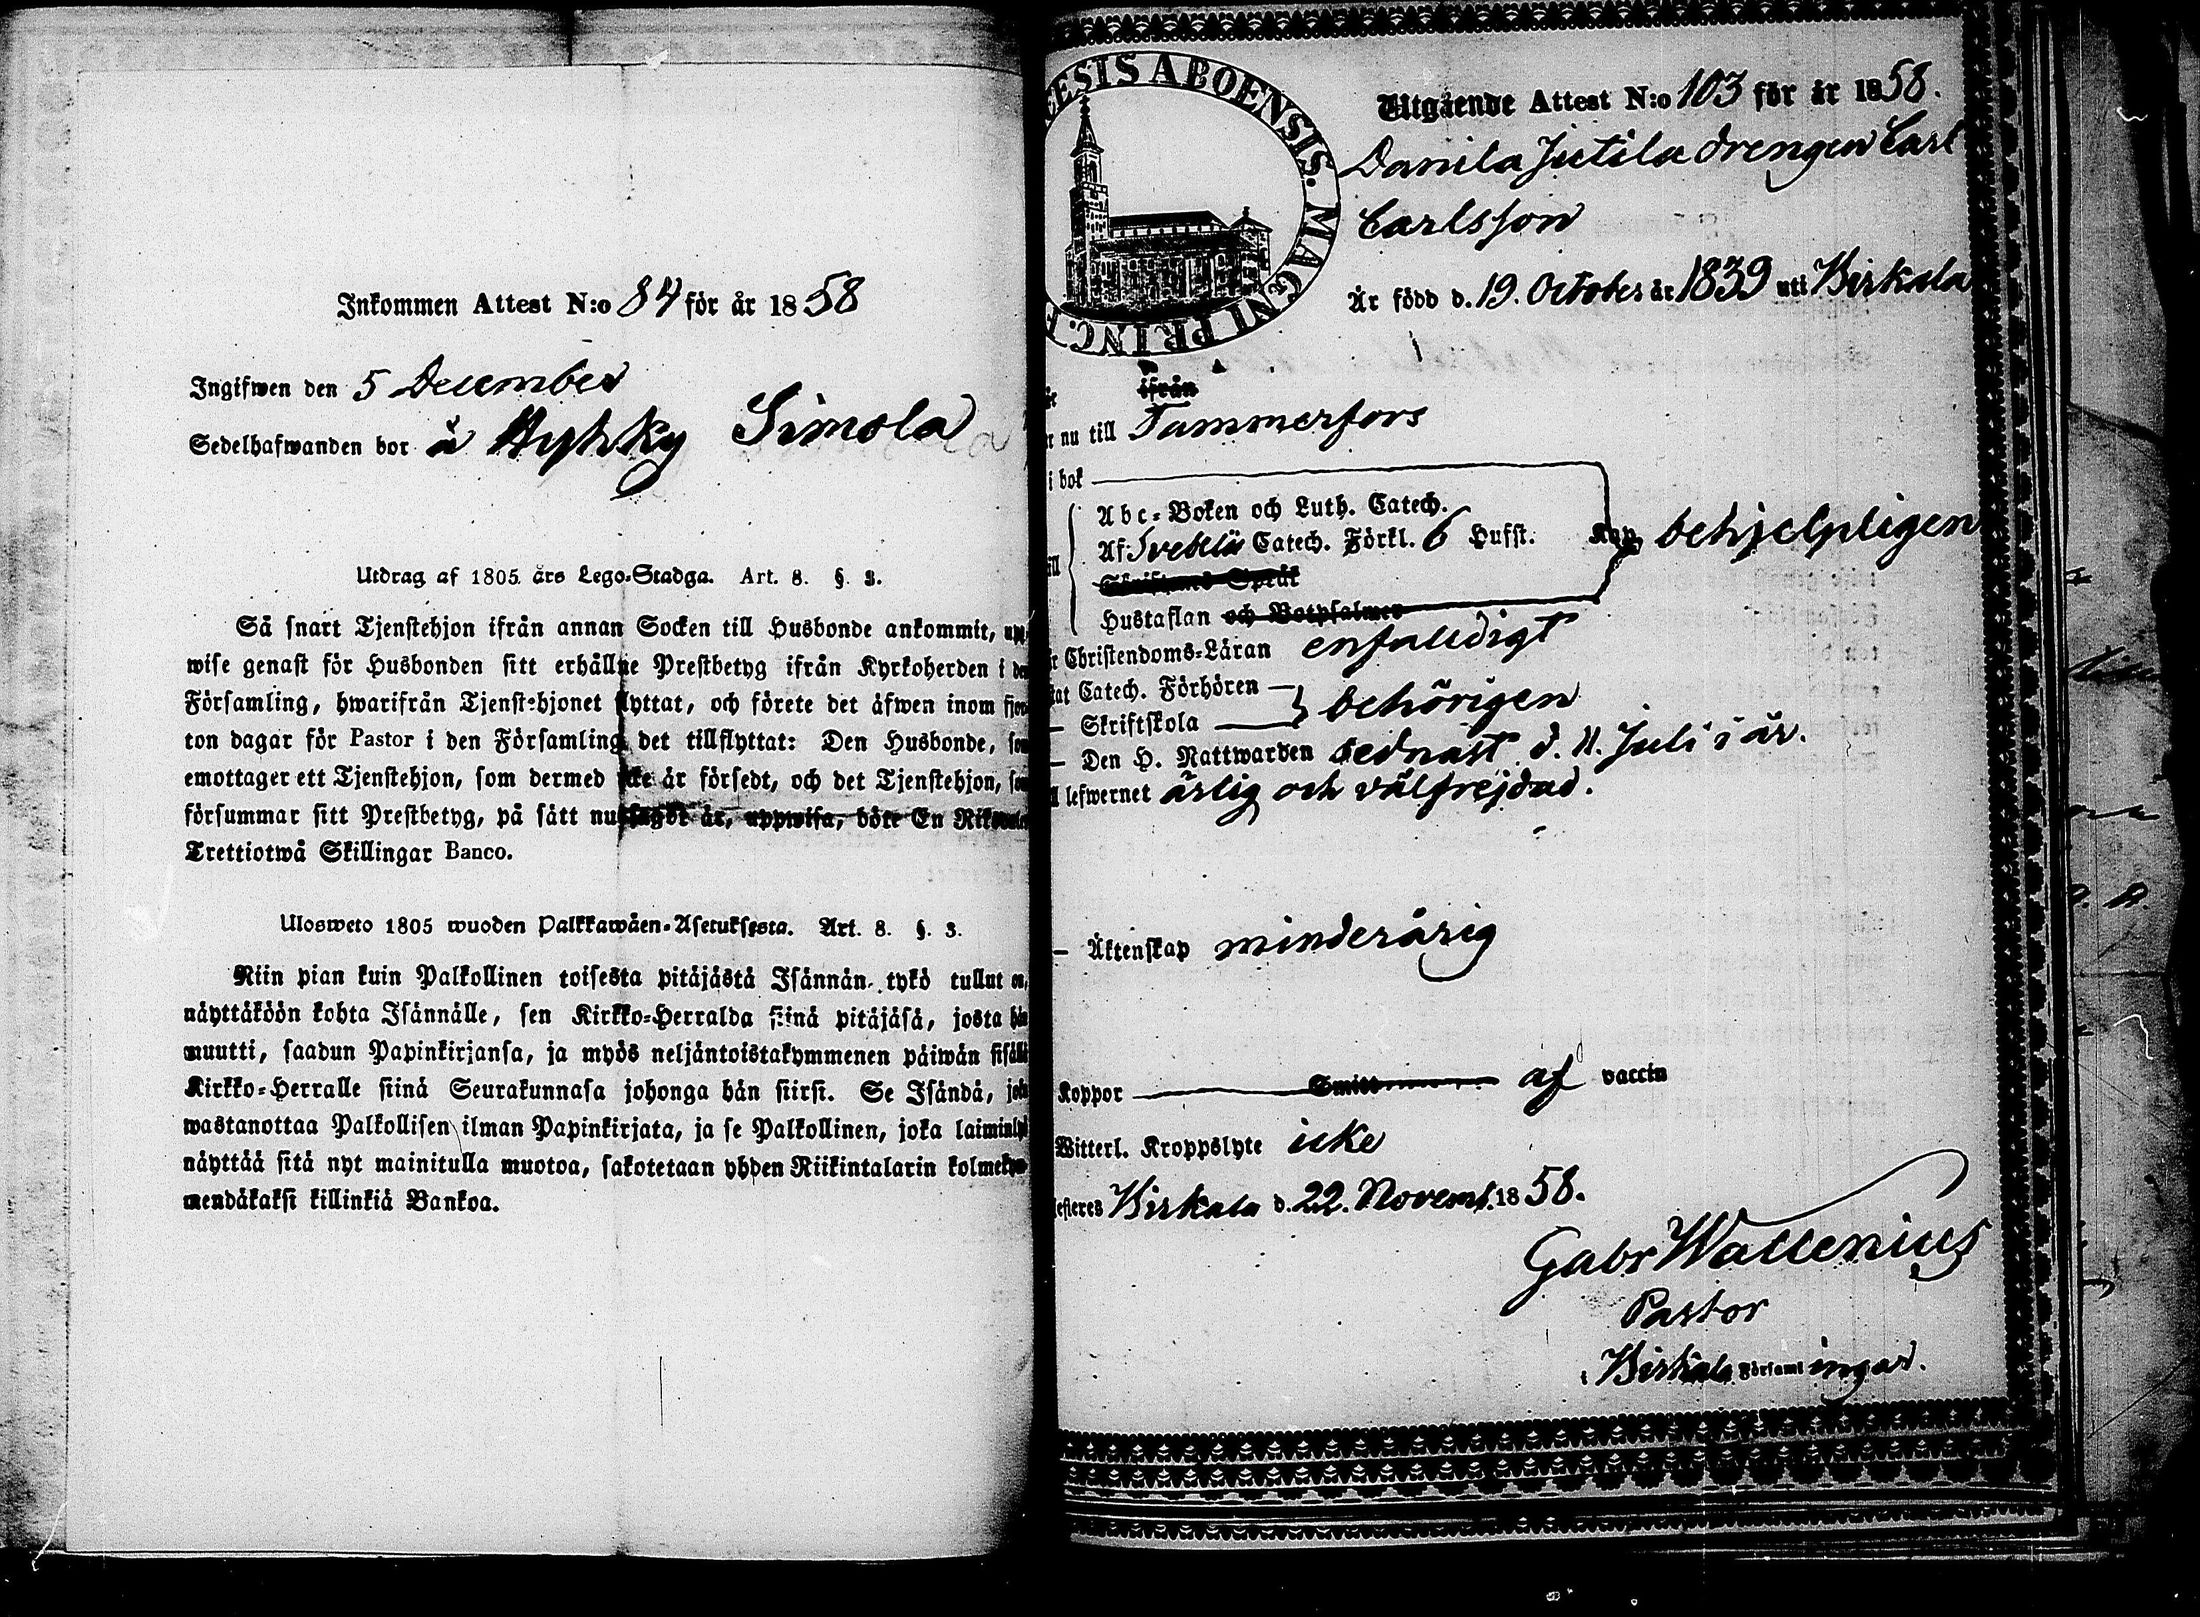 Inkommen Attest N:o 84 för år 1858
Ingifwen den 5 December
Sedelhafwanden bor å Hyhky Simola
Utdrag af 1805 års Lego-Stadga. Art. 8. §. 3.
Så snart Tjenstehjon ifrån annan Socken till Husbonde ankommit, upp-
wise genast för Husbonden sitt erhållne Prestbetyg ifrån Kyrkoherden i den
Församling, hwarifrån Tjenstehjonet flyttat, och förete det äfwen inom fjor-
ton dagar för Pastor i den Församling det tillflyttat: Den Husbonde, som
emottager ett Tjenstehjon, som dermed icke är försedt, och det Tjenstehjon, som
försummar sitt Prestbetyg, på sätt nu sagdt är, uppwisa, böte En Riksdaler
Trettiotwå Skillingar Banco.
Ulosweto 1805 wuoden Palkkawäen-Asetuksesta. Art. 8. §. 3.
Niin pian kuin Palkollinen toisesta pitäjästä Isännän tykö tullut on,
näyttäköön kohta Isännälle, sen Kirkko-Herralda siinä pitäjäsä, josta hän
muutti, saadun Papinkirjansa, ja myös neljäntoistakymmenen päiwän sisälle
Kirkko-Herralle siinä Seurakunnasa johonga hän siirsi. Se Isändä, joka
wastanottaa Palkollisen ilman Papinkirjata, ja se Palkollinen, joka laiminlyö
näyttää sitä nyt mainitulla muotoa, sakotetaan yhden Riikintalarin kolmekym-
mendäkaksi killinkiä Bankoa.
ECESIS ABOENSIS. MAGNI PRINC. F
Utgående Attest N:o 103 för år 1858.
Danila Jutila drengen Carl
Carlsson
Är född d. 19. October år 1839 uti Birkala
ifrån
r nu till Tammerfors
i bok
Abc-Boken och Luth. Catech.
Af Svebelii Catech. Förkl. 6 Hufst. behjelpligen
Skriftens Språk
Hustaflan och Botpsalmer
r Christendoms-Läran enfalldigt
kat Catech. Förhören
— Skriftskola — behörigen
— Den H. Nattwarden sednast d. 11. Juli i år.
l lefwernet ärlig och välfrejdad.
— Äktenskap minderårig
Koppor Smitt af vaccin
Witterl. Kroppslyte icke
efteres Birkala d. 22. Novemb. 1858.
Gabr Wallenius
Pastor
i Birkala Församlingar.